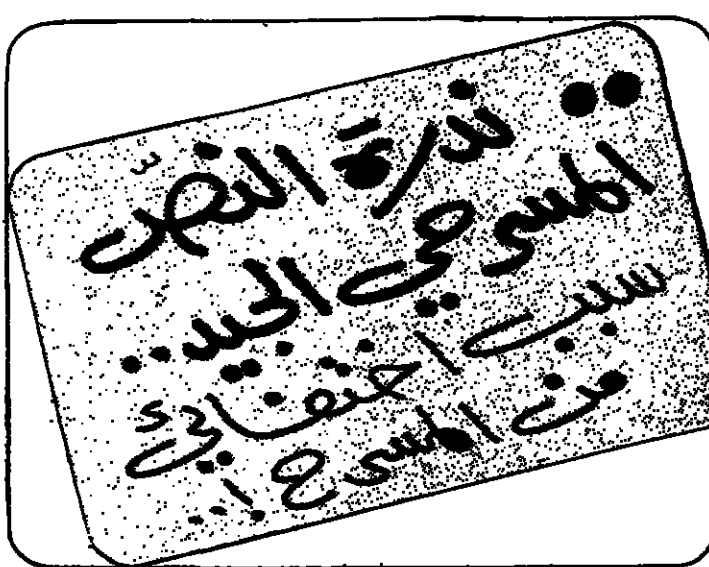 .. ندرة النصّ
المسرحي الجيد ..
سبب اختفائي
من المسرح ! ..